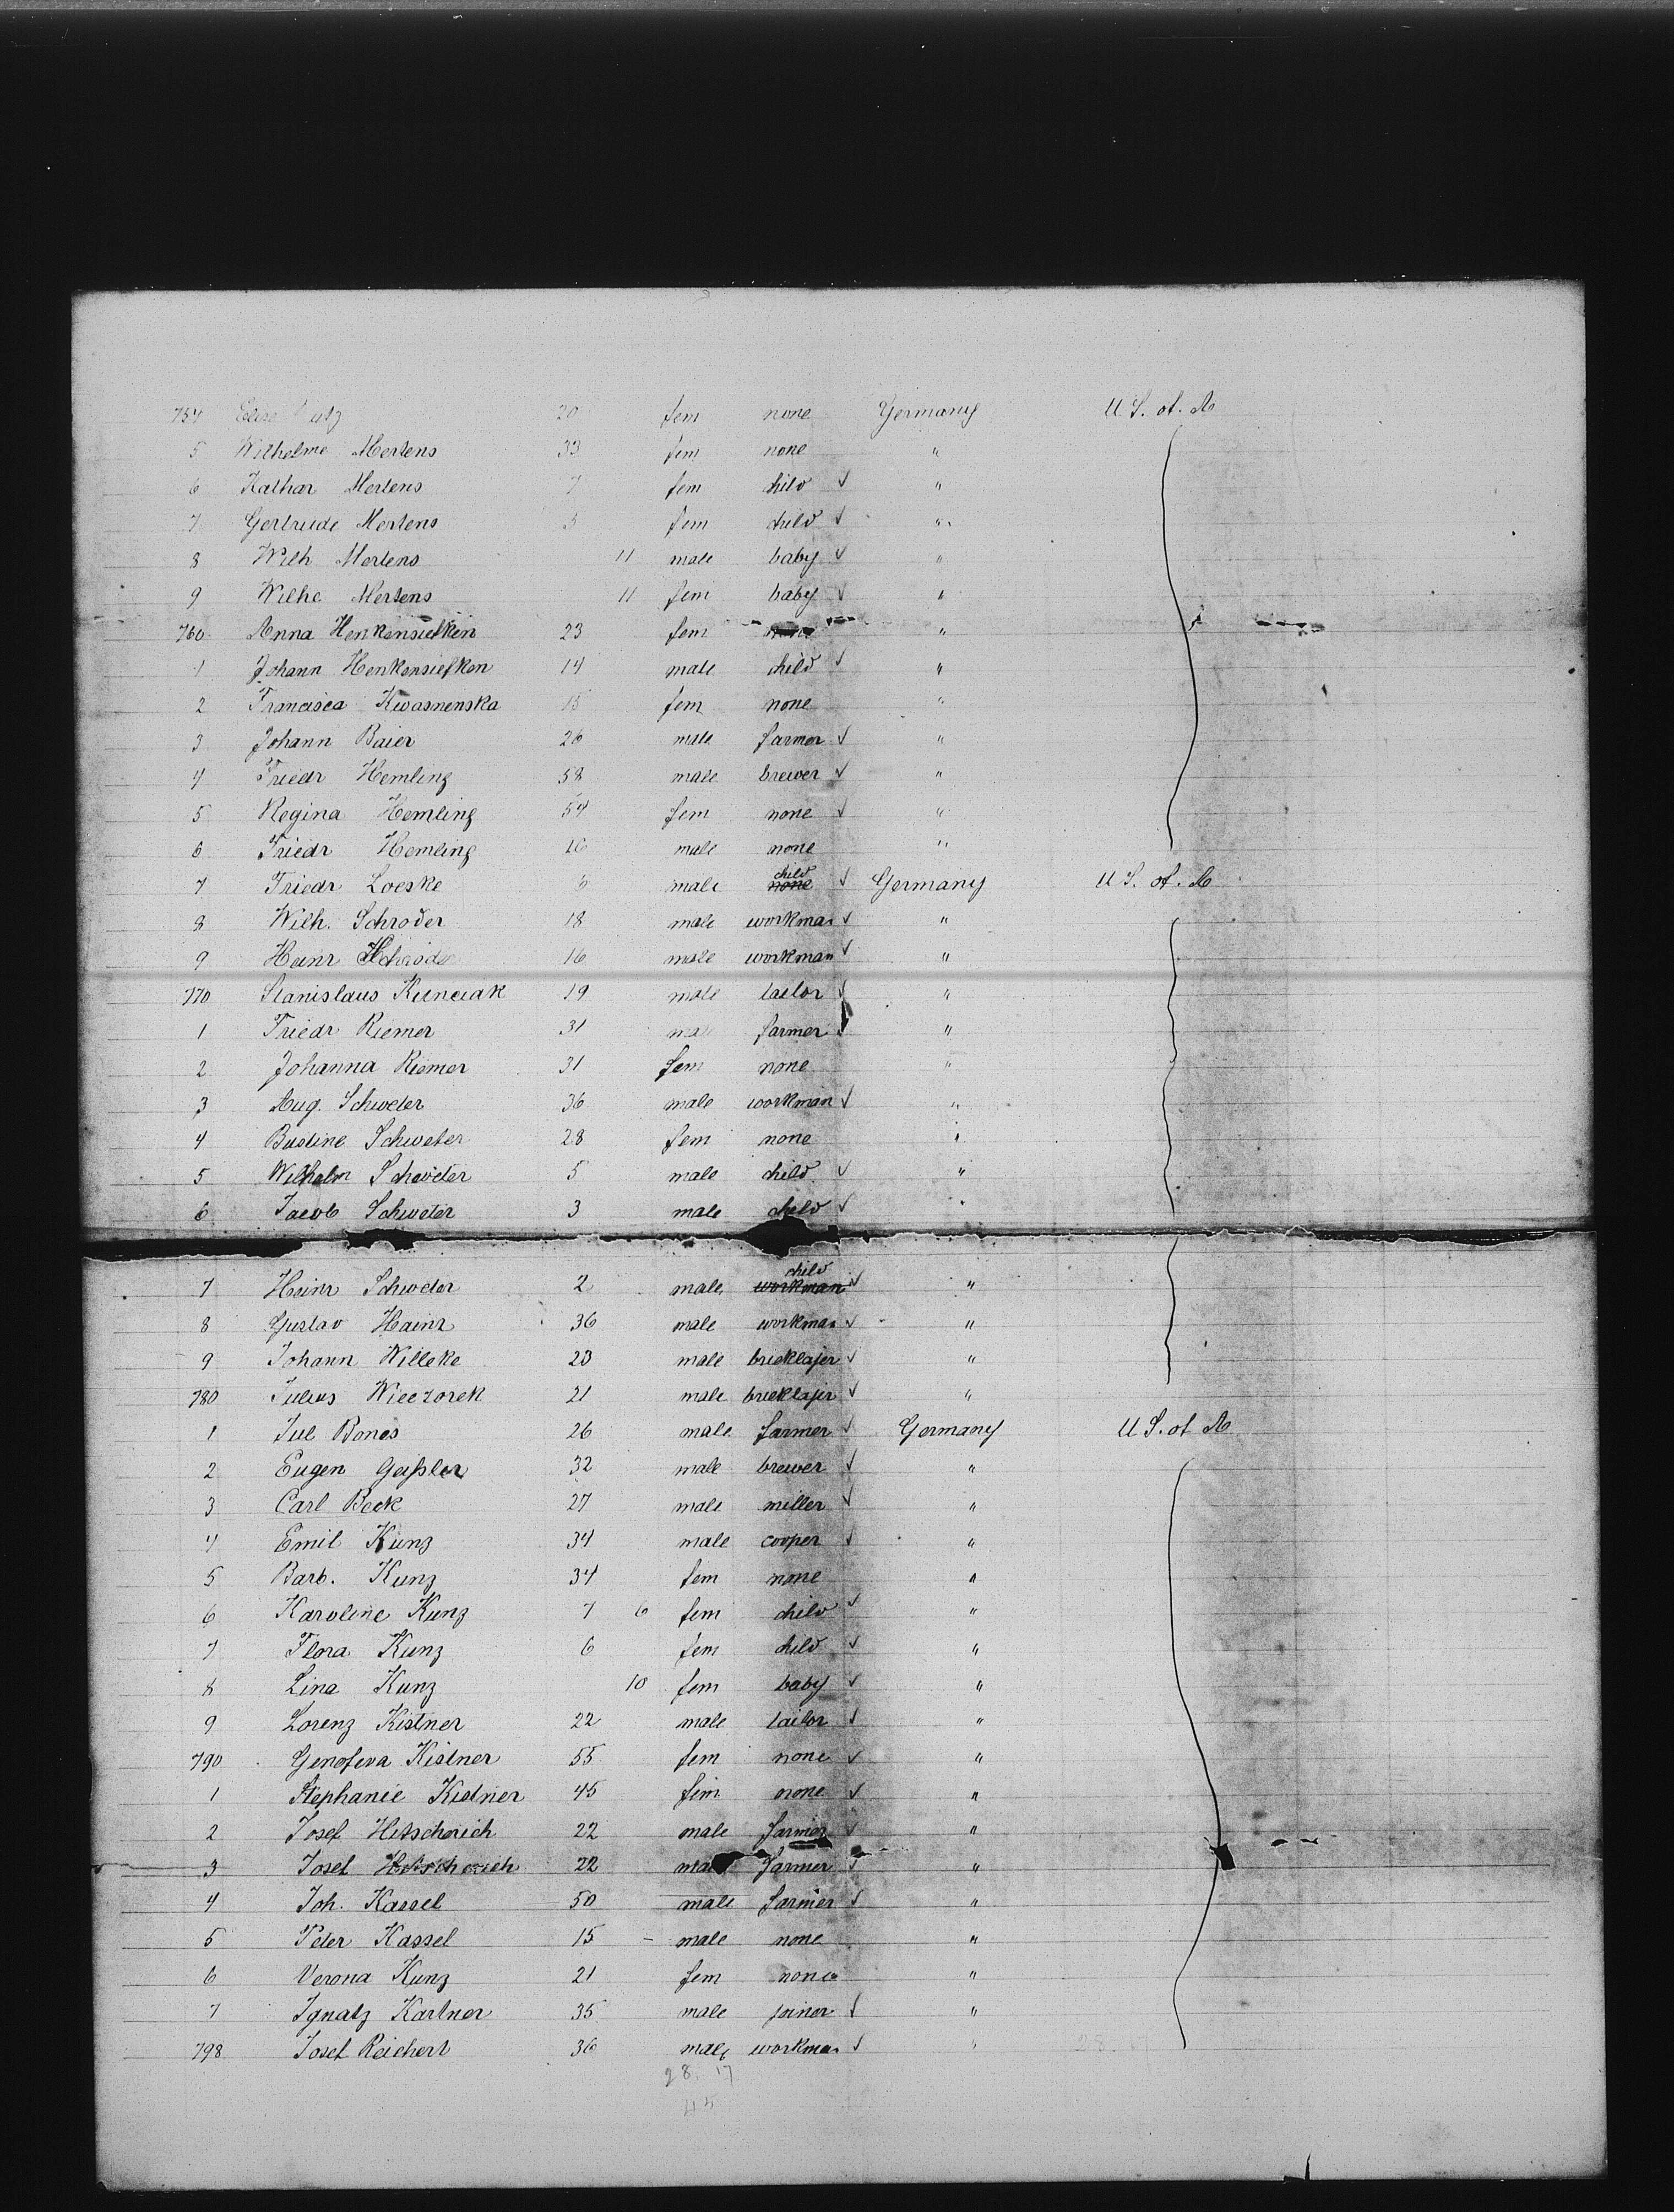 754 Elise 20 fem none Germany U S. of. A
5 Wilhelme Mertens 33 fem none "
6 Kathar Mertens 7 fem child ✓ "
7 Gertrude Mertens 3 fem child ✓ "
8 Wilh Mertens 11 male baby ✓ "
9 Wilhe Mertens 11 fem baby ✓ "
760 Anna Henkensiefken 23 fem none "
1 Johann Henkensiefken 14 male child ✓ "
2 Francisca Kwasnenska 15 fem none "
3 Johann Baier 26 male farmer ✓ "
4 Friedr Hemling 58 male brewer ✓ "
5 Regina Hemling 54 fem none ✓ "
6 Friedr Hemling 16 male none "
7 Friedr Loeske 6 male none child ✓ Germany U S. of. A
8 Wilh. Schroder 18 male workman ✓ "
9 Heinr Schroder 16 male workman ✓ "
770 Stanislaus Kunciak 19 male tailor ✓ "
1 Friedr Riemer 31 ma farmer ✓ "
2 Johanna Riemer 31 fem none "
3 Aug. Schweter 36 male workman ✓ "
4 Bustine Schweter 28 fem none "
5 Wilhelm Schweter 5 male child ✓ "
6 Jacob Schweter 3 male child ✓ "
7 Heinr Schweter 2 male workman child ✓ "
8 Gustav Hainz 36 male workman ✓ "
9 Johann Willeke 23 male bricklajer ✓ "
780 Julius Wieczorek 21 male bricklajer ✓ "
1 Jul Bones 26 male farmer ✓ Germany U S. of A
2 Eugen Geißler 32 male brewer ✓ "
3 Carl Beck 27 male miller ✓ "
4 Emil Kunz 34 male cooper ✓ "
5 Barb. Kunz 34 fem none "
6 Karoline Kunz 7 6 fem child ✓ "
7 Flora Kunz 6 fem child ✓ "
8 Lina Kunz 10 fem baby ✓ "
9 Lorenz Kistner 22 male tailor ✓ "
790 Genofeva Kistner 55 fem none ✓ "
1 Stephanie Kistner 45 fem none ✓ "
2 Josef Hitscherich 22 male farmer ✓ "
3 Josef Hitscherich 22 male farmer ✓ "
4 Joh. Kassel 50 male farmer ✓ "
5 Peter Kassel 15 - male none "
6 Verona Kunz 21 fem none "
7 Ignatz Kartner 35 male joiner ✓ "
798 Josef Reichert 36 male workman ✓ "
28. 17
45